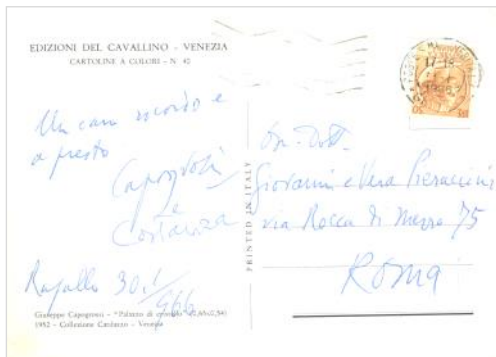 EDIZIONI DEL CAVALLINO - VENEZIA
CARTOLINE A COLORI - N. 40
Un caro ricordo e
a presto
Capogrossi
e
Costanza
Rapallo 30.1/966
Giuseppe Capogrossi - "Palazzo di cristallo" (0,65x0,54)
1952 - Collezione Cardazzo - Venezia
PRINTED IN ITALY
17-18
On. Dott.
Giovanni e Vera Pieraccini
via Rocca di Mezzo 75
Roma